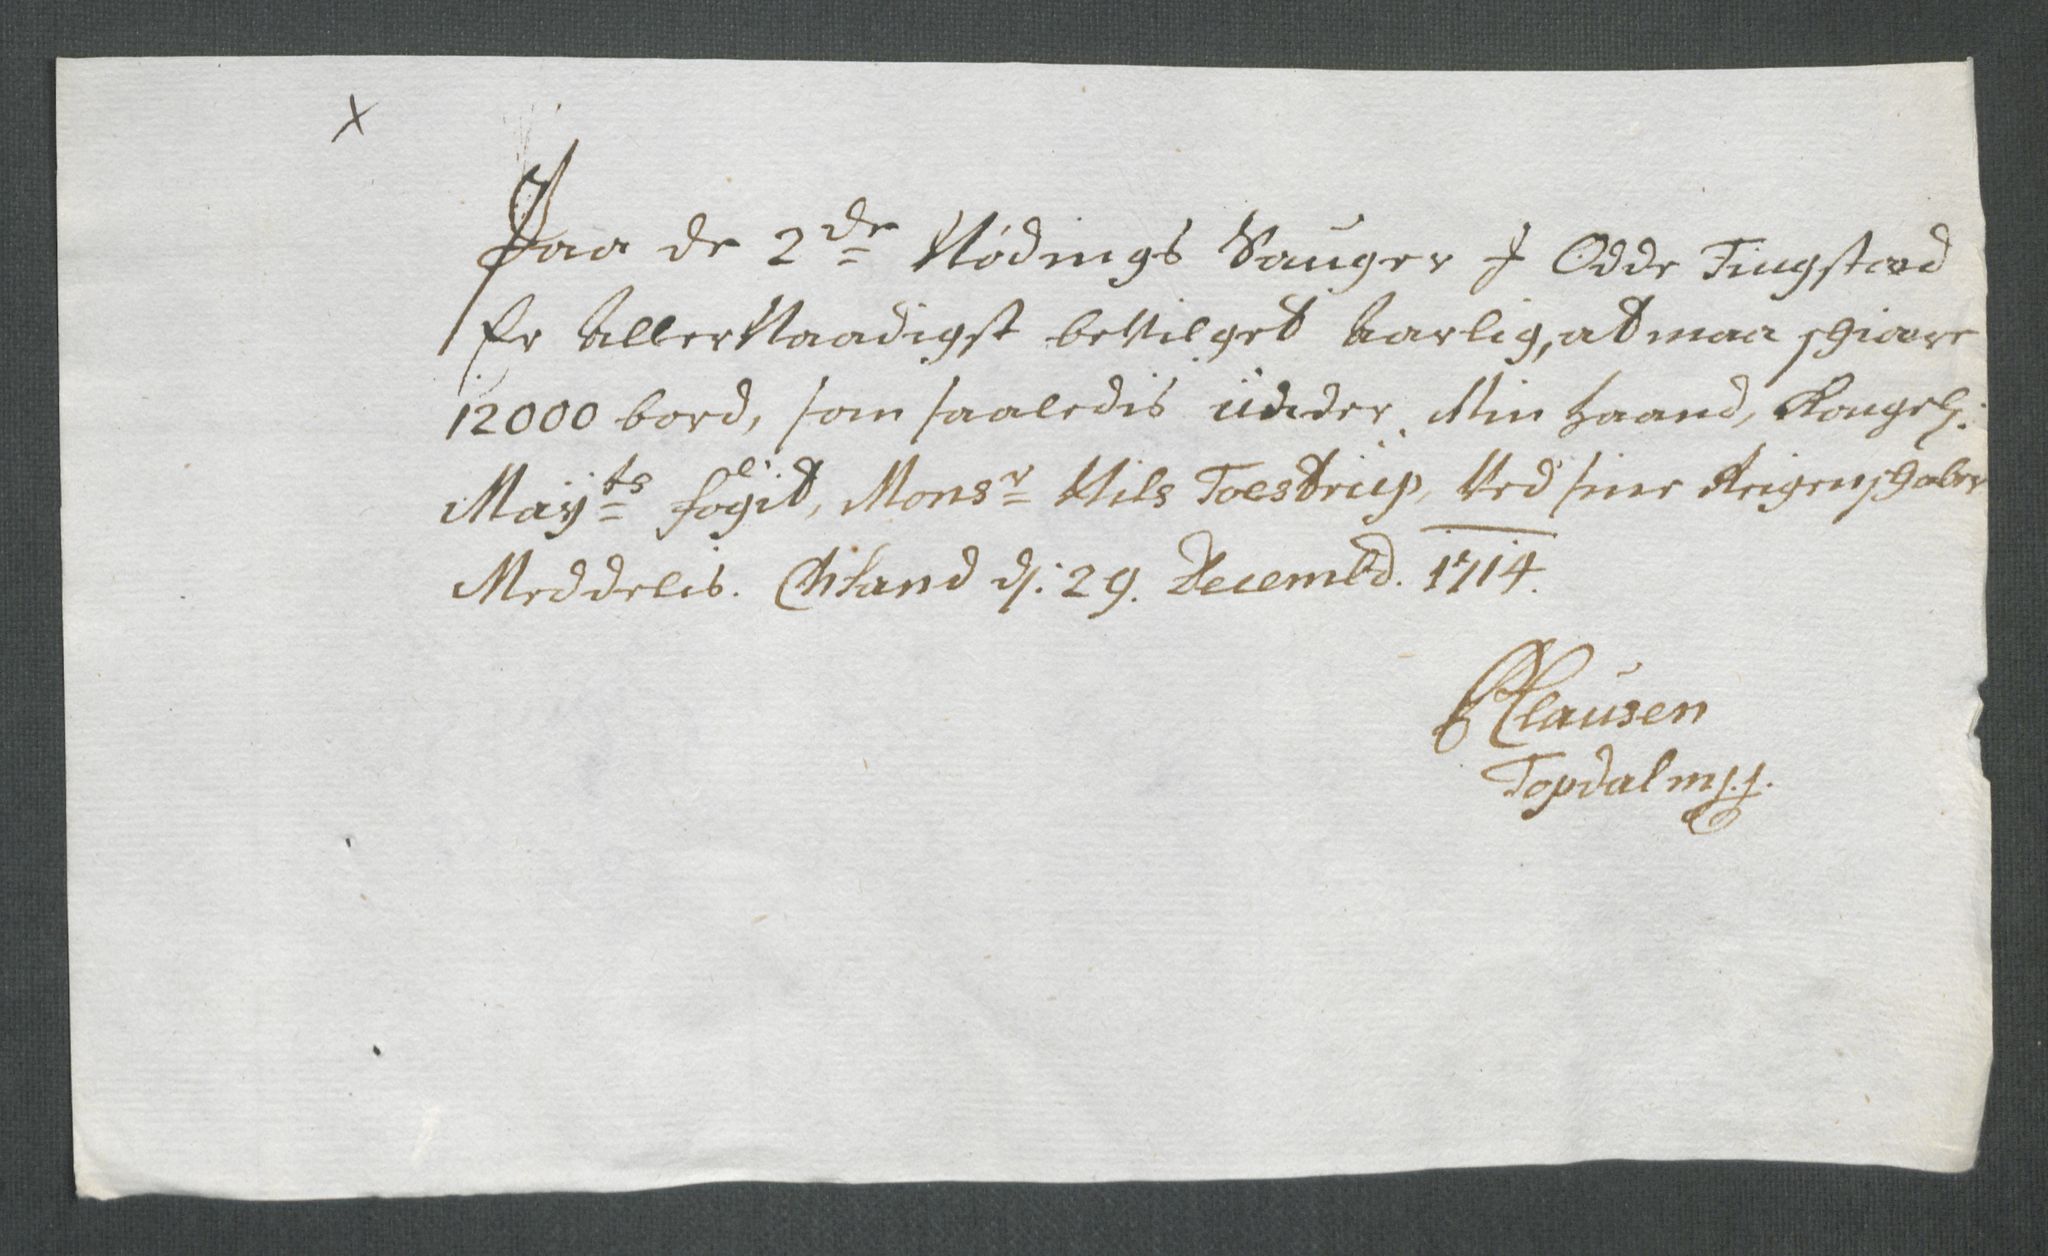 x
Paa de 2de Nödings Sauger J Odde Tingstæd
Er AllerNaadigst beVilget Aarlig, at maa schiære
12000 bord, som saaledis under Min Haand, Kongel:
Mayts fogit, Monsr Nils Toestrup, Ved sine Reigenschaber
Meddelis. ChSand d: 29. Decembr. 1714.
Clausen
Topdal mpp.